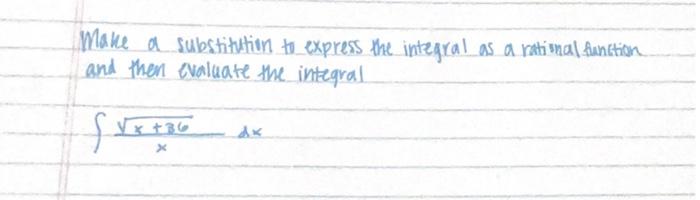 Make a substitution to express the integral as a rational function
and then evaluate the integral
∫ √(x + 36) / x dx